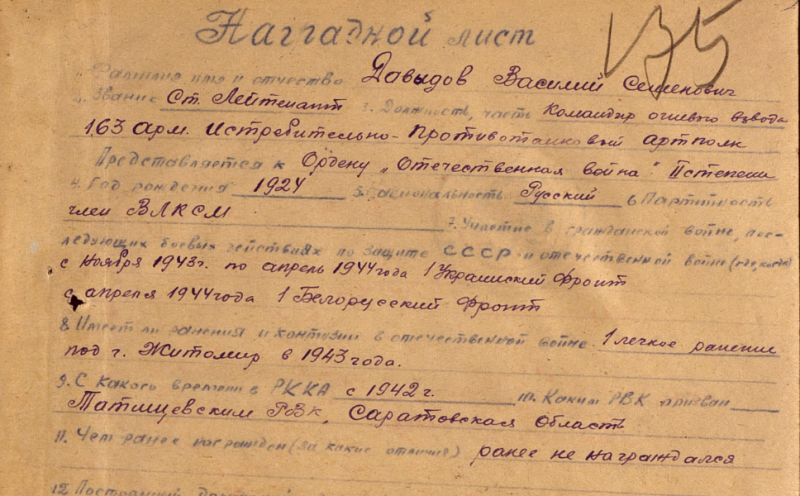 Наградной лист
135
Фамилия имя и отчество Давыдов Василий Семенович
2. Звание Ст. Лейтенант 3. Должность, часть Командир огневого взвода
163 Арм. Истребительно-Противотанковый Артполк
Представляется к Ордену „Отечественная война" II степени
4. Год рождения 1924 5. Национальность Русский 6. Партитность
член ВЛКСМ 7. Участие в гражданской войне, пос-
ледующих боевых действиях по защите СССР и отечественной войне (где, когда)
с Ноября 1943г. по апрель 1944 года 1 Украинский Фронт
с апреля 1944 года 1 Белорусский Фронт
8. Имеет ли ранения и контузии в отечественной войне 1 легкое ранение
под г. Житомир в 1943 года.
9. С какого времени в РККА с 1942 г. 10. Каким РВК призван
Татищевским РВК, Саратовская Область
11. Чем ранее награжден (за какие отличия) ранее не награждался
12. Постоянный